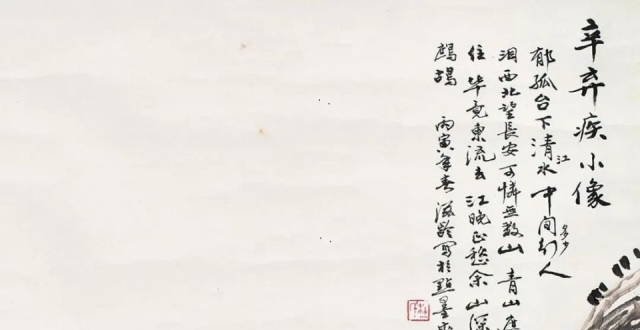 辛弃疾小像
郁孤台下清江水中间多少行人
泪西北望長安可憐無数山青山
住毕竟東流去江晚正愁余山深
鷓鴣 丙寅年春滋龄寫於點墨